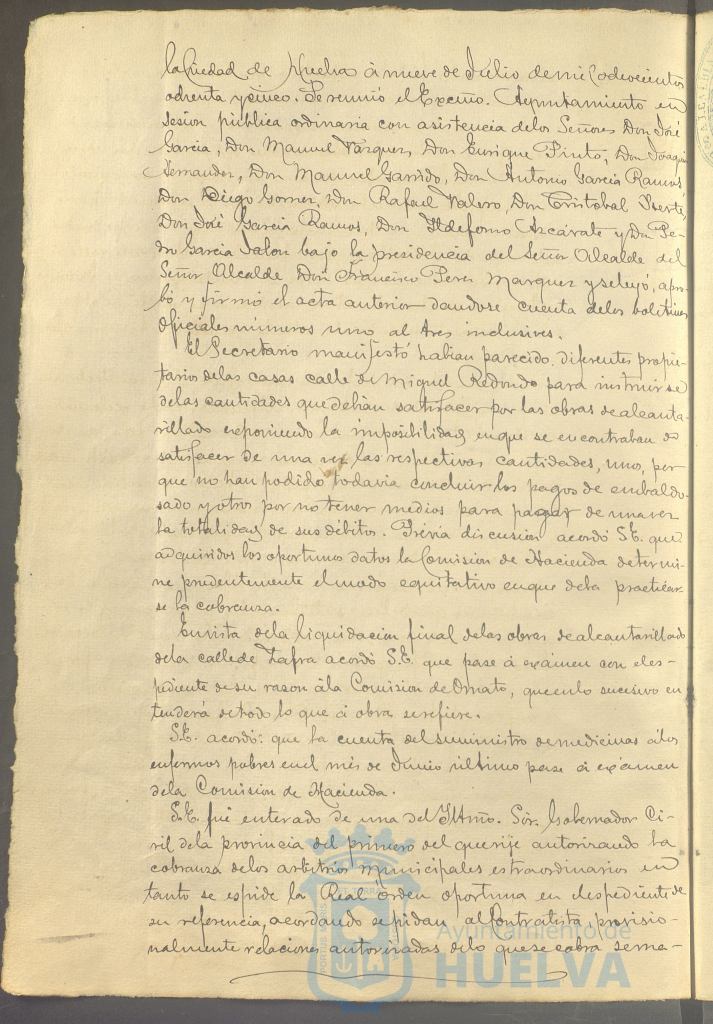 la Ciudad de Huelva á nueve de Julio de mil ochocientos
ochenta y cinco. Se reunió el Excmo. Ayuntamiento en
sesion pública ordinaria con asistencia delos Señores Don José
Garcia, Don Manuel Vazquez, Don Enrique Pinto, Don Joaquin
Hernandez, Don Manuel Garrido, Don Antonio Garcia Ramos,
Don Diego Gomez, Don Rafael Valero, Don Cristobal
Don José Garcia Ramos, Don Ildefonso Azcárate y Don Pe-
dro Garcia Jalon bajo la presidencia del Señor Alcalde del
Señor Alcalde Don Francisco Perez Marquez y se leyó, apro-
bó y firmó el acta anterior dandose cuenta delos boletines
Oficiales números uno al tres inclusives.
El Secretario manifestó habian parecido diferentes propie-
tarios delas casas calle de Miguel Redondo para instruirse
delas cantidades que debian satisfacer por las obras de alcanta-
rillado exponiendo la imposibilidad en que se encontraban de
satisfacer de una vez las respectivas cantidades, unos, por
que no han podido todavia concluir los pagos de embaldo-
sado y otros por no tener medios para pagar de una vez
la totalidad de sus débitos. Prévia discusion acordó S.E. que
adquiridos los oportunos datos la Comision de Hacienda determi-
ne prudentemente el modo equitativo en que deba practicar-
se la cobranza.
En vista dela liquidacion final delas obras de alcantarillado
dela calle de Zafra acordó S.E. que pase á exámen con el es-
pediente de su razon á la Comision de Ornato, que en lo sucesivo en
tenderá de todo lo que á obra se refiere.
S.E. acordó: que la cuenta del suministro de medicinas álos
enfermos pobres en el mes de Junio último pase á exámen
dela Comision de Hacienda.
S.E. fué enterado de una del Iltmo. Sor. Gobernador Ci-
vil dela provincia del primero del que rije autorizando la
cobranza delos arbitrios municipales estraordinarios en
tanto se espide la Real órden oportuna en el espediente de
su referencia, acordando se pidan al Contratista, provisio-
nalmente relaciones autorizadas delo que se cobra sema-
Ayuntamiento de
HUELVA